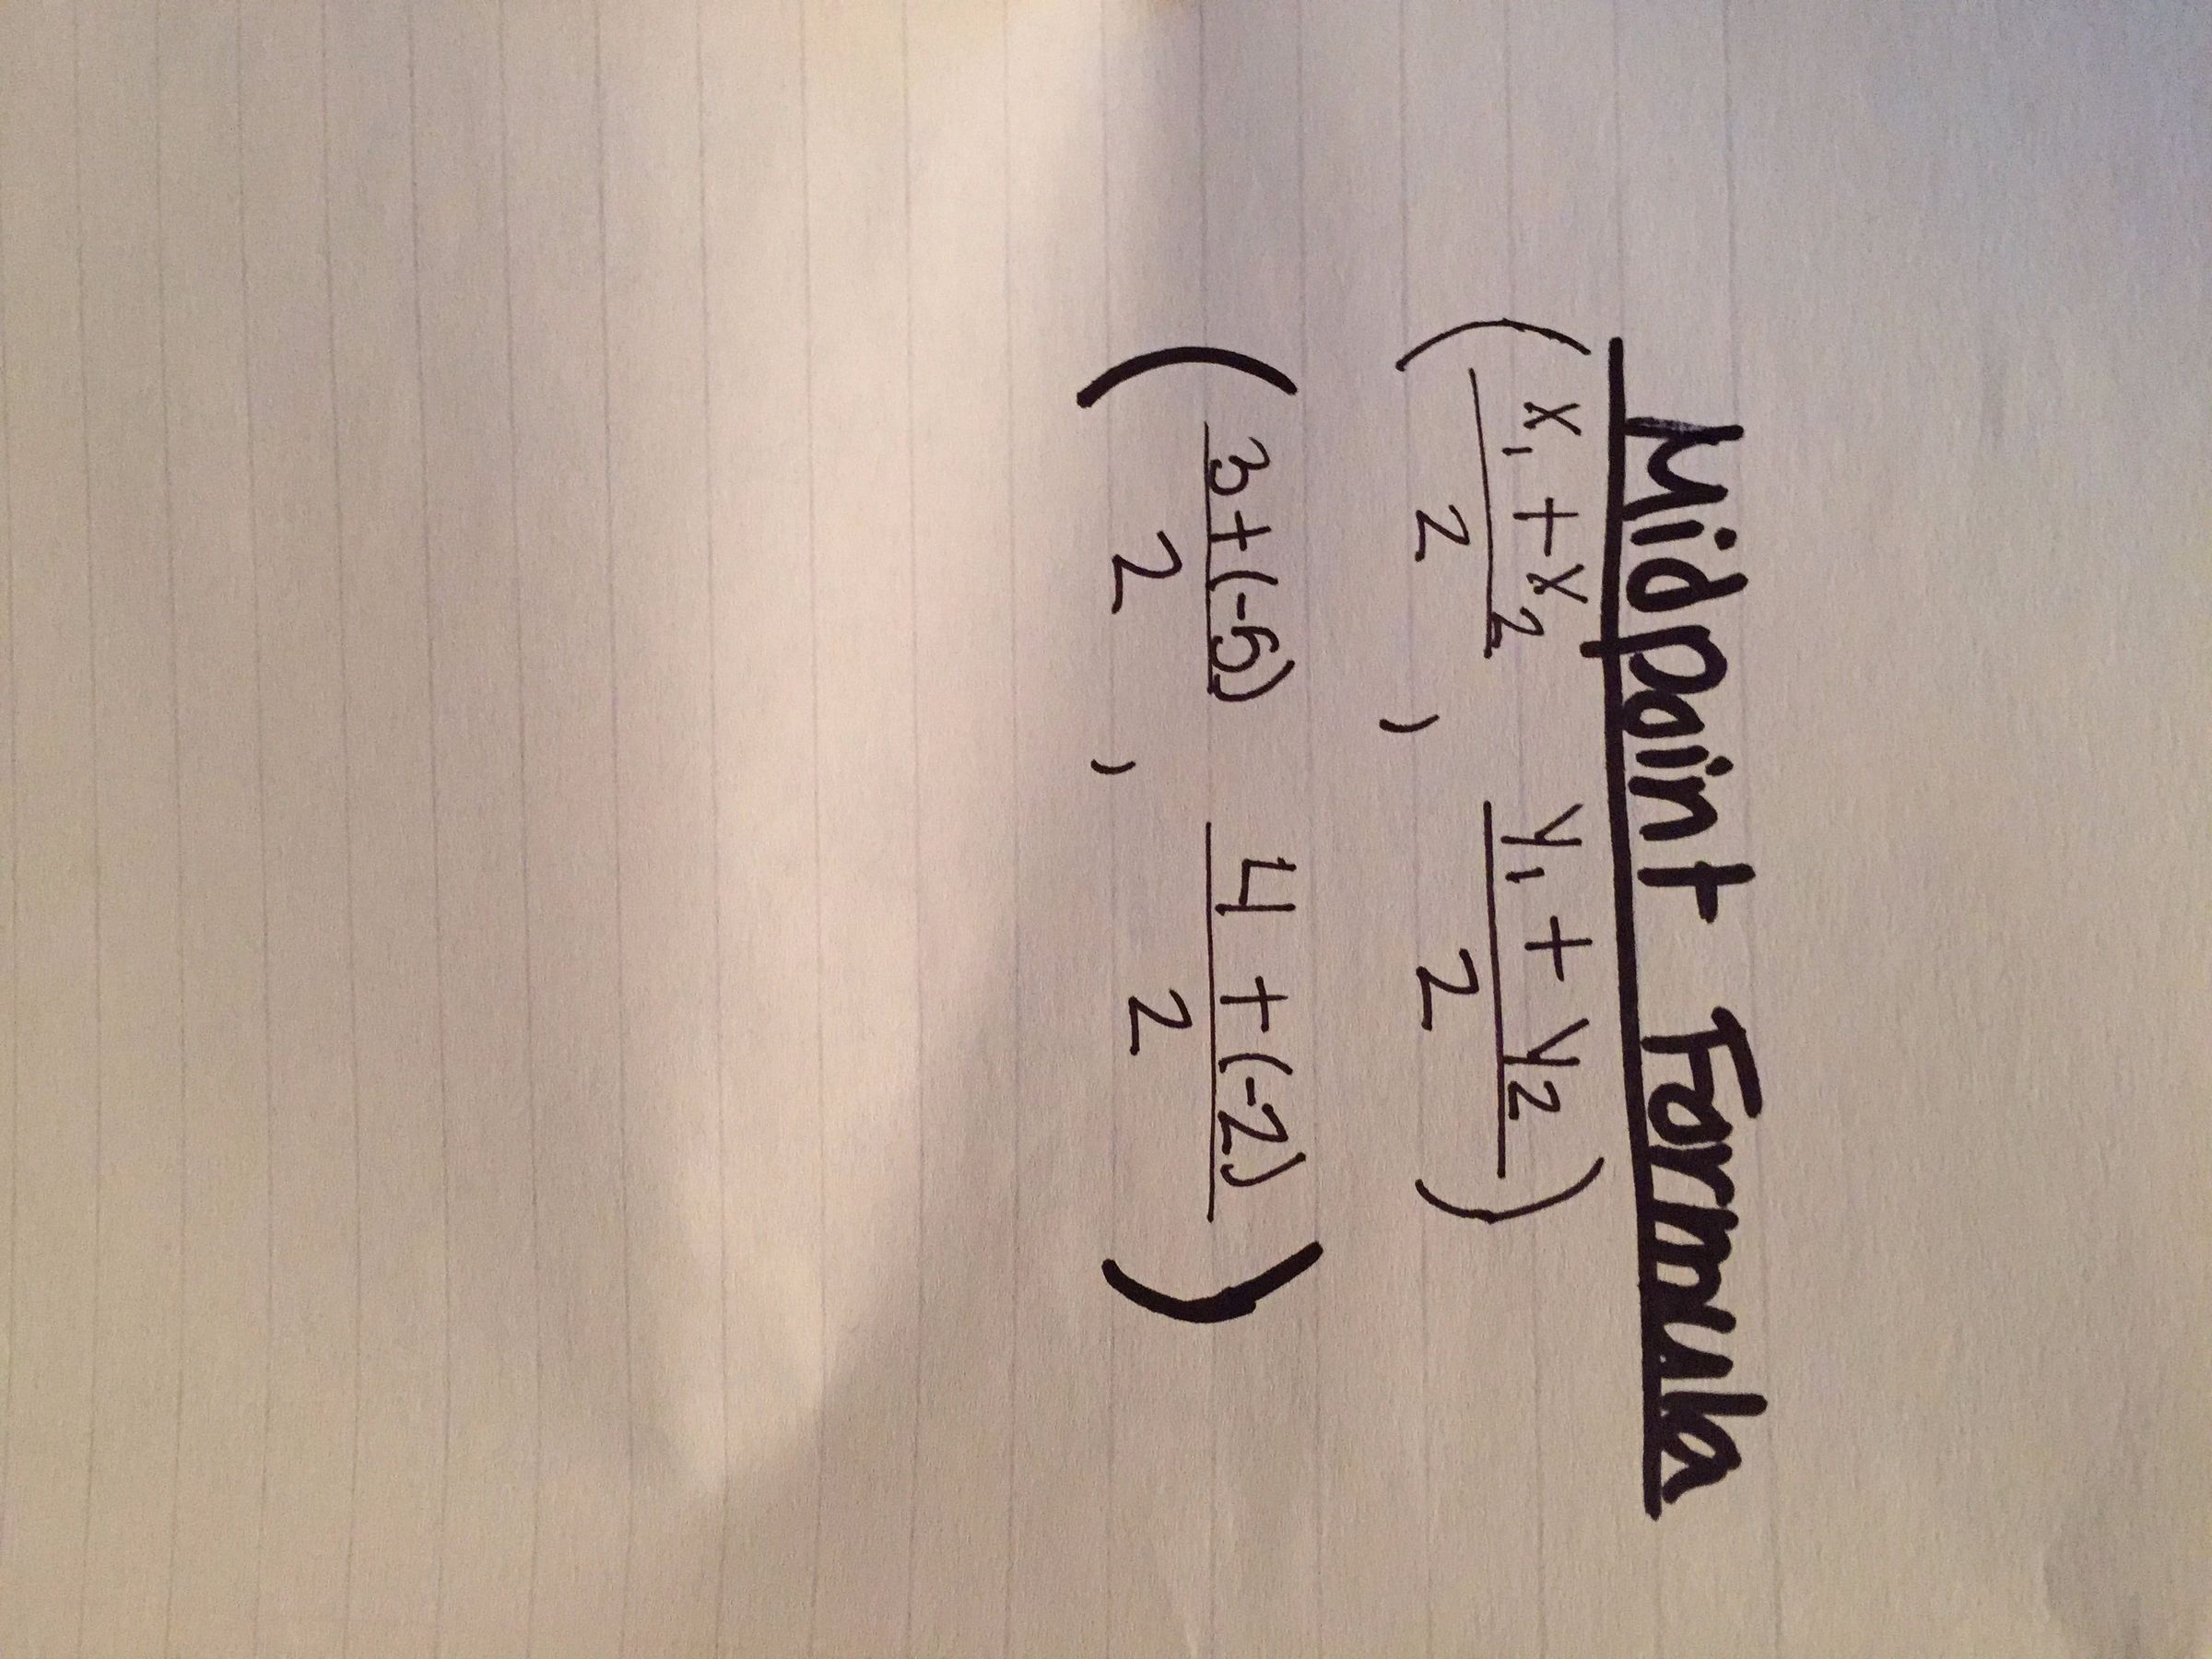 Midpoint Formula
( x₁ + x₂ / 2 , y₁ + y₂ / 2 )
( 3 + (-5) / 2 , 4 + (-2) / 2 )